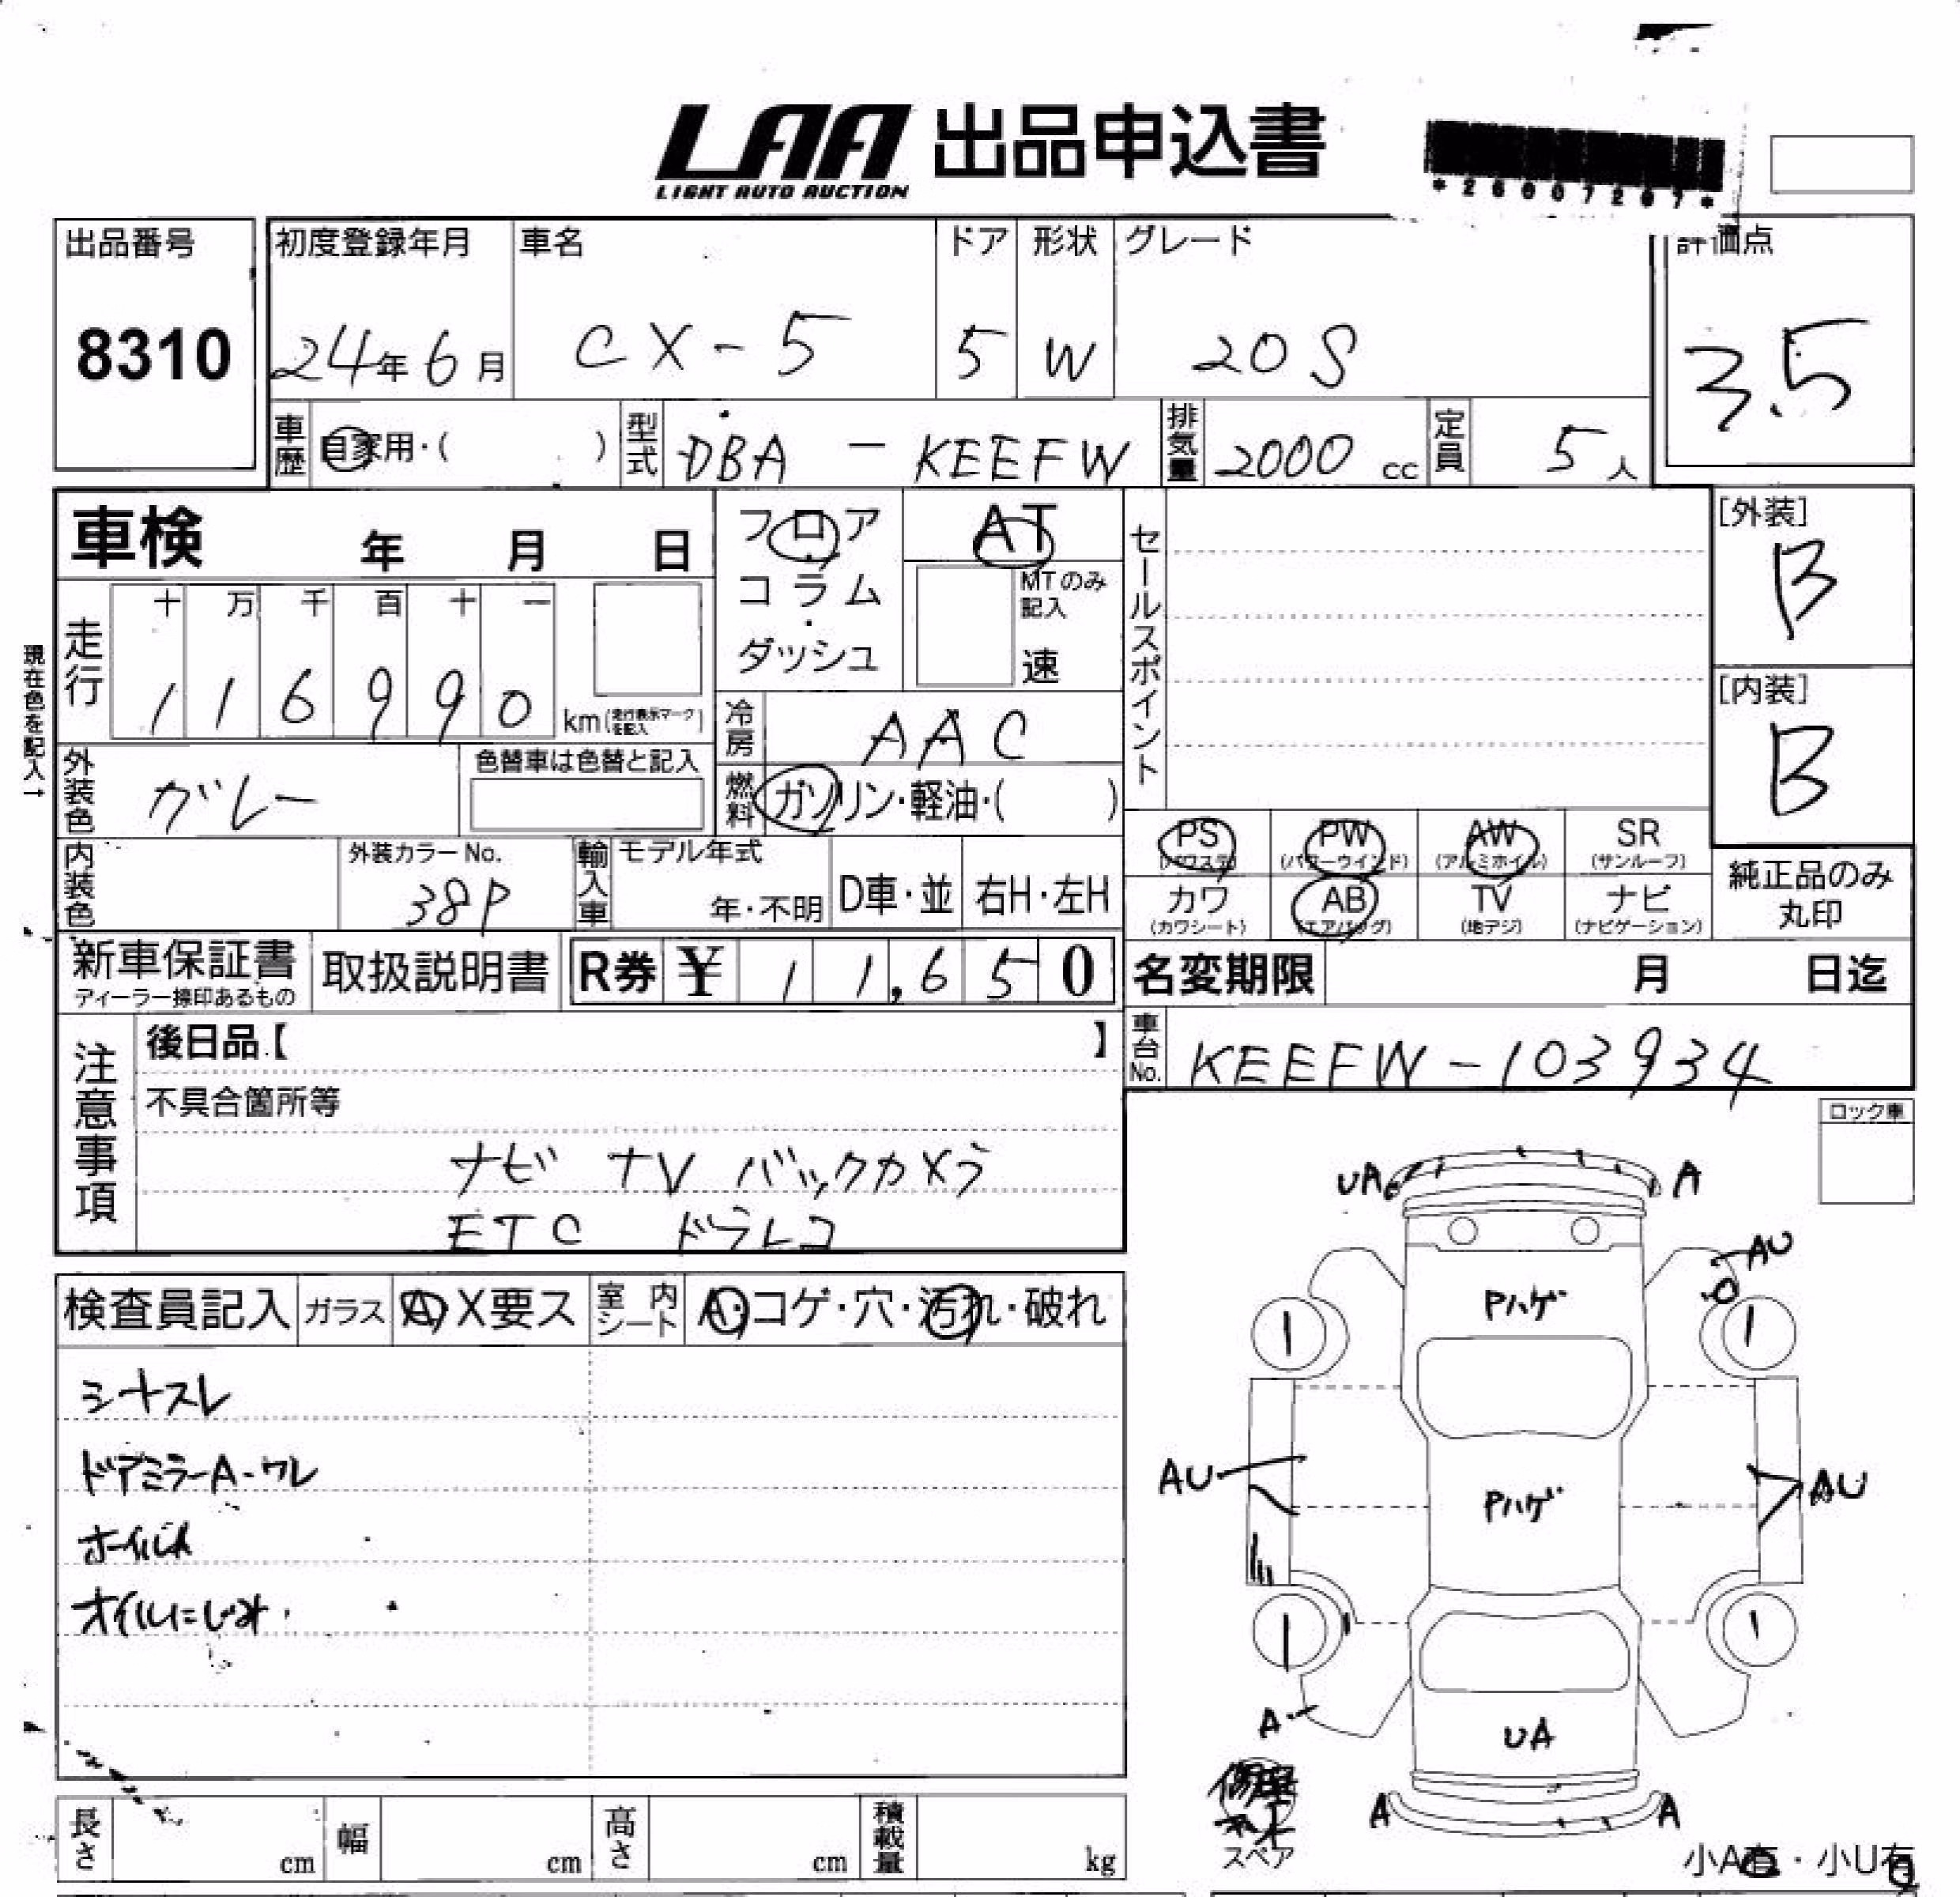 LAA 出品申込書
LIGHT AUTO AUCTION
*26007207*
出品番号 初度登録年月 車名 ドア 形状 グレード 評価点
8310 24年6月 CX-5 5 W 20S 3.5
車歴 自家用・( ) 型式 DBA - KEEFW 排気量 2000 cc 定員 5人
車検 年 月 日 フロア AT セールスポイント [外装]
B
コラム MTのみ記入
・
ダッシュ 速
現在色を記入↑
走行 十 万 千 百 十 一
1 1 6 9 9 0 km(走行表示マークを記入)
[内装]
B
冷房 AAC
外装色 グレー 色替車は色替と記入
燃料 ガソリン・軽油・( )
内装色 外装カラーNo. 38P 輸入車 モデル年式 年・不明 D車・並 右H・左H
PS PW AW SR
(パワステ) (パワーウインド) (アルミホイル) (サンルーフ)
カワ AB TV ナビ
(カワシート) (エアバッグ) (地デジ) (ナビゲーション)
純正品のみ
丸印
新車保証書 取扱説明書 R券 ¥ 11,650 名変期限 月 日迄
ディーラー捺印あるもの
車台No. KEEFW-103934
注意事項 後日品【 】
不具合箇所等
ナビ TV バックカメラ
ETC ドラレコ
ロック車
検査員記入 ガラス A・X要ス 室内シート A・コゲ・穴・汚れ・破れ
シナスレ
ドアミラーA・ワレ
ホイルA
オイルにじみ
UA A
AU
Pハゲ
AU Pハゲ AU
A UA
A A
スペア
小A有・小U有
長さ cm 幅 cm 高さ cm 積載量 kg